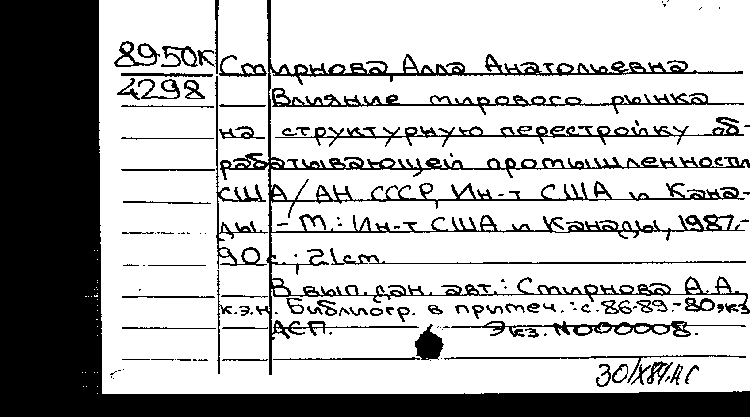 8950к Смирнова, Алла Анатольевна.
4298 Влияние мирового рынка
на структурную перестройку об-
рабатывающей промышленности
США/АН СССР, Ин-т США и Кана-
ды. - М.: Ин-т США и Канады, 1987.-
90 с.; 21 см.
В вып. дан. авт.: Смирнова А.А.,
к.э.н. Библиогр. в примеч.: с. 86-89 - 80 экз
ДСП. Экз. N000008.